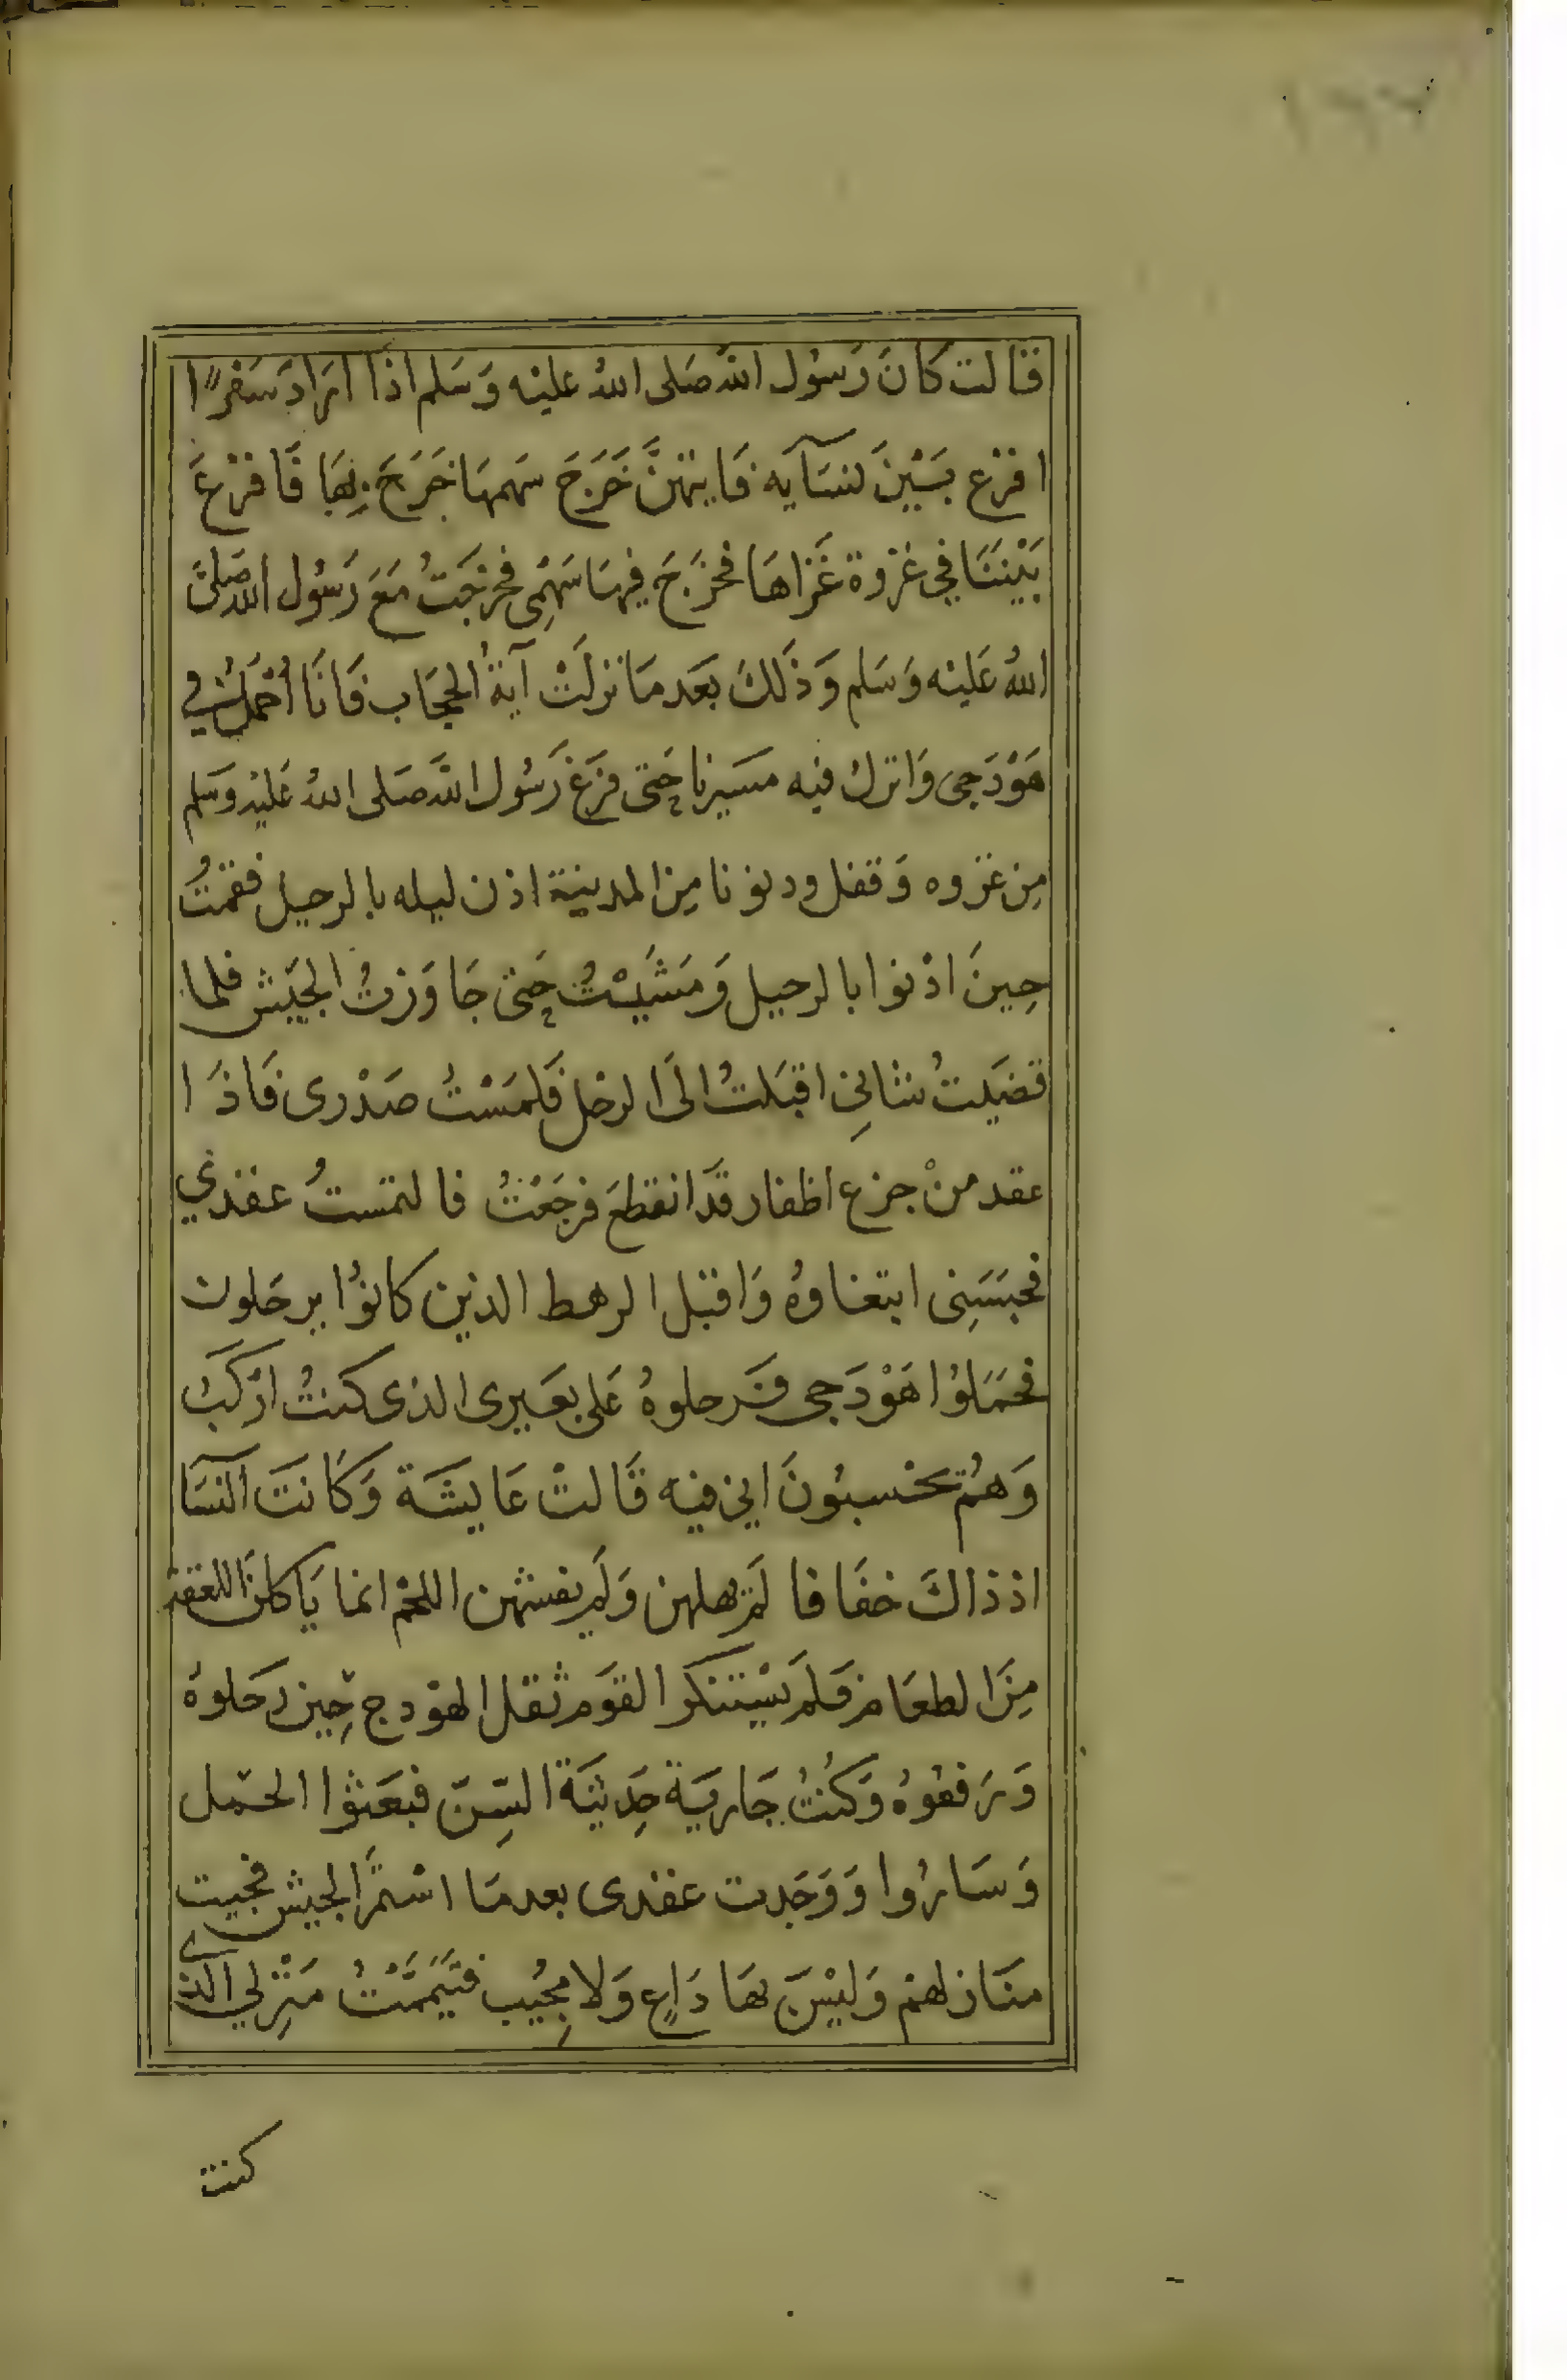 قالت كانَ رَسُول اللهَ صَلى اللهُ عليْه وَسَلم اذَا ارَادَ سَفرًا
اقرْع بَيْنَ لنسَآيه فَايتهنَّ خَرَجَ سَهمهَا خَرَجَ بِهَا فَاقرْعَ
بَيْننَا في غزوة غَزاهَا فخرَجَ فيهَا سَهْمِى فخرَجَتُ مَعَ رَسُول الله صَلىَّ
اللهُ عَليْه وَسَلم وَذَلكَ بعَد مَا نزلَتْ آيةُ الحجَاب فَانَا اُحْمَلُ في
هَوْدَجى وَانزلُ فيْه مسَيرنا حَتى فرَغ رَسُول اللهَ صَلى اللهُ عَليْه وَسَلم
مِن غزوه وَقفل ودنونا مِن المدينة اذن ليله بالرحيل فقمتُ
حِينَ اذْنوا بالرحيل وَمَشَيْتُ حَتى جَاوَزتُ الجَيْش فلما
قضَيتُ شانِي اقبَلتُ الَى الرحْل فَلمَسْتُ صَدْرى فَاذَا
عقد منْ جزع اظفار قدَ انقطعَ فرجَعْتُ فالتمَستُ عقدي
فحبَسَنِى ابتغاوهُ وَاقبْل الرهط الذين كانوُا يرحَلون
فحَمَلوُا هَوْدَجى فرَحلوهُ عَلى بعَيرى الذى كنتُ ارْكَبُ
وَهُم يحْسبُونَ اني فيْه قَالتْ عَايشَة وَكَانتَ النسَآ
اذ ذاكَ خفَافا لَمْ يهبلهن وَلَم يغشهن اللحْم انما يَاكلنَ اللعقة
مِنَ الطعَام فَلمَ يَسْتنكر القوَم ثقل الهوْدج حِين رَحَلوهُ
وَرَفعُوهُ وَكنُتُ جَاريَة حَدِيثَة السِّنّ فبعَثوُا الجمَل
وَسَارُوا وَوَجَدت عقدى بعد مَا اسْتمرَّ الجيش فجيت
منَازلهْم وَليْسَ بهَا دَاعٍ وَلا مِجُيب فتَيَممَّتُ مَنْزِلي الذي
كنت